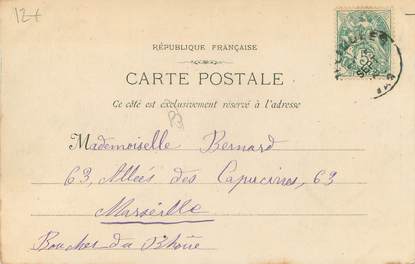 12+
RÉPUBLIQUE FRANÇAISE
CARTE POSTALE
Ce côté est exclusivement réservé à l'adresse
Mademoiselle Bernard
63, Allées des Capucines, 63
Marseille
Bouches du Rhône